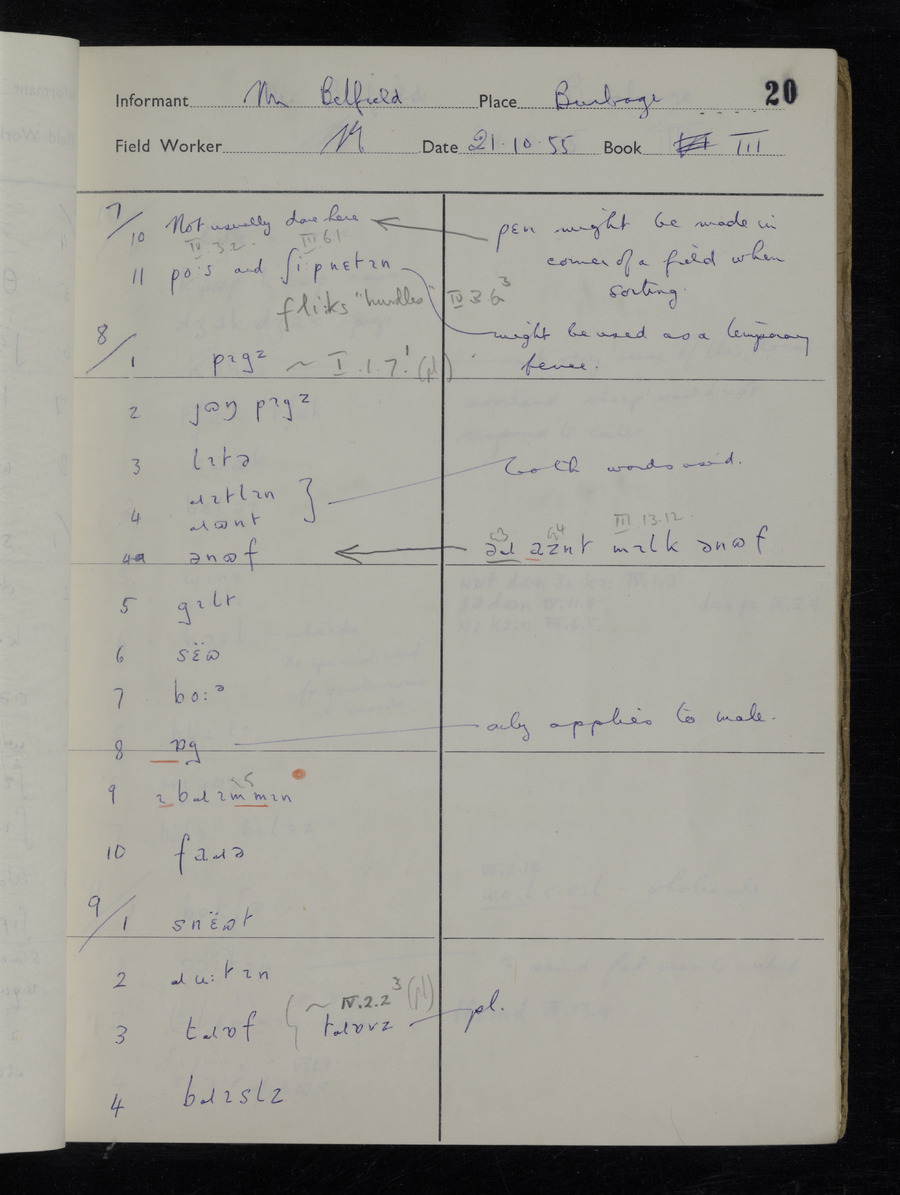 20
Informant Mr Belfield Place Burbage
Field Worker Date 21·10·55 Book III
7/10 Not usually done here
pen might be made in
corner of a field when
sorting.
IV 3.2. III 6.1
11 po·s and ʃi·pnɛtɪn
fli:ks "hurdles" IV 3 6³
might be used as a temporary
fence.
8/1 pɪgz ~ I.1.7.¹ (pl)
2 jɷŋ pɪgz
3 lɪtə
both words used.
4 ɹɪtlɪn
ɹɷnt
4a ənɷf
III.13.12.
mɪlk ənɷf
5 gɪlt
6 sɛ̈ɷ
7 bo:ᵊ
8 ɒg
only applies to male.
9
10
9/1 snɛ̈ɷt
2 ɹu:tɪn
~ IV.2.2³ (pl)
3 tɹɒf tɹɒvz pl.
4 bɹɪslz